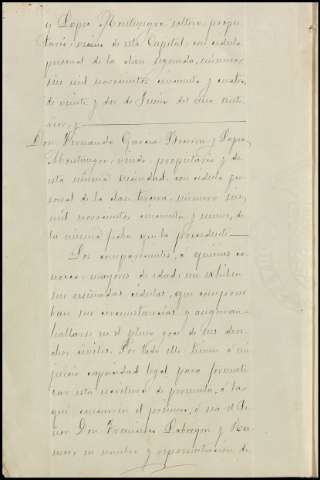 y Lopez Montenegro soltero propie-
tario vecino de esta Capital con cedula
personal de la clase segunda, número
seis mil novecientos cincuenta y cuatro,
de veinte y dos de Junio del año ante-
rior; y
Don Fernando Garcia y Lopez
Montenegro, viudo, propietario y de
esta misma vecindad, con cedula per-
sonal de la clase tercera, número seis
mil novecientos cincuenta y nueve, de
la misma fecha que la precedente
Los comparecientes, á quienes co-
nozco, mayores de edad, me exhiben
sus reseñadas cedulas, que comprue-
ban sus circunstancias y aseguran
hallarse en el pleno goce de sus dere-
chos civiles. Por todo ello tienen á mi
juicio capacidad legal para formali-
zar esta escritura de permuta, á la
que concurren el primero, ó sea el Se-
ñor Don Francisco y Ra-
mos en nombre y representación de